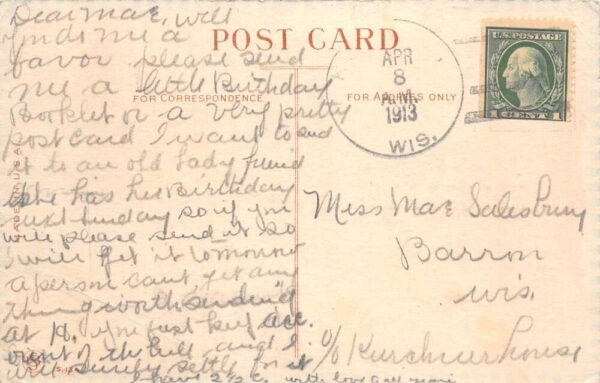 POST CARD
FOR CORRESPONDENCE
FOR ADDRESS ONLY
U.S. POSTAGE
1 CENT 1
APR
8
1913
WIS.
Dear Mae, will
me a
favor please send
me a little Birthday
Booklet or a very pretty
postcard I want to send
it to an old lady friend
she has her Birthday
next Sunday so if you
will please send it so
I will get it tomorrow
a person cant get any
thing worth sending
at H. you just keep acc.
of the bill and I
will surely settle for it
I have 2 1/2 c. with love
Miss Mae Salesbury
Barron
Wis.
c/o Kirchner house